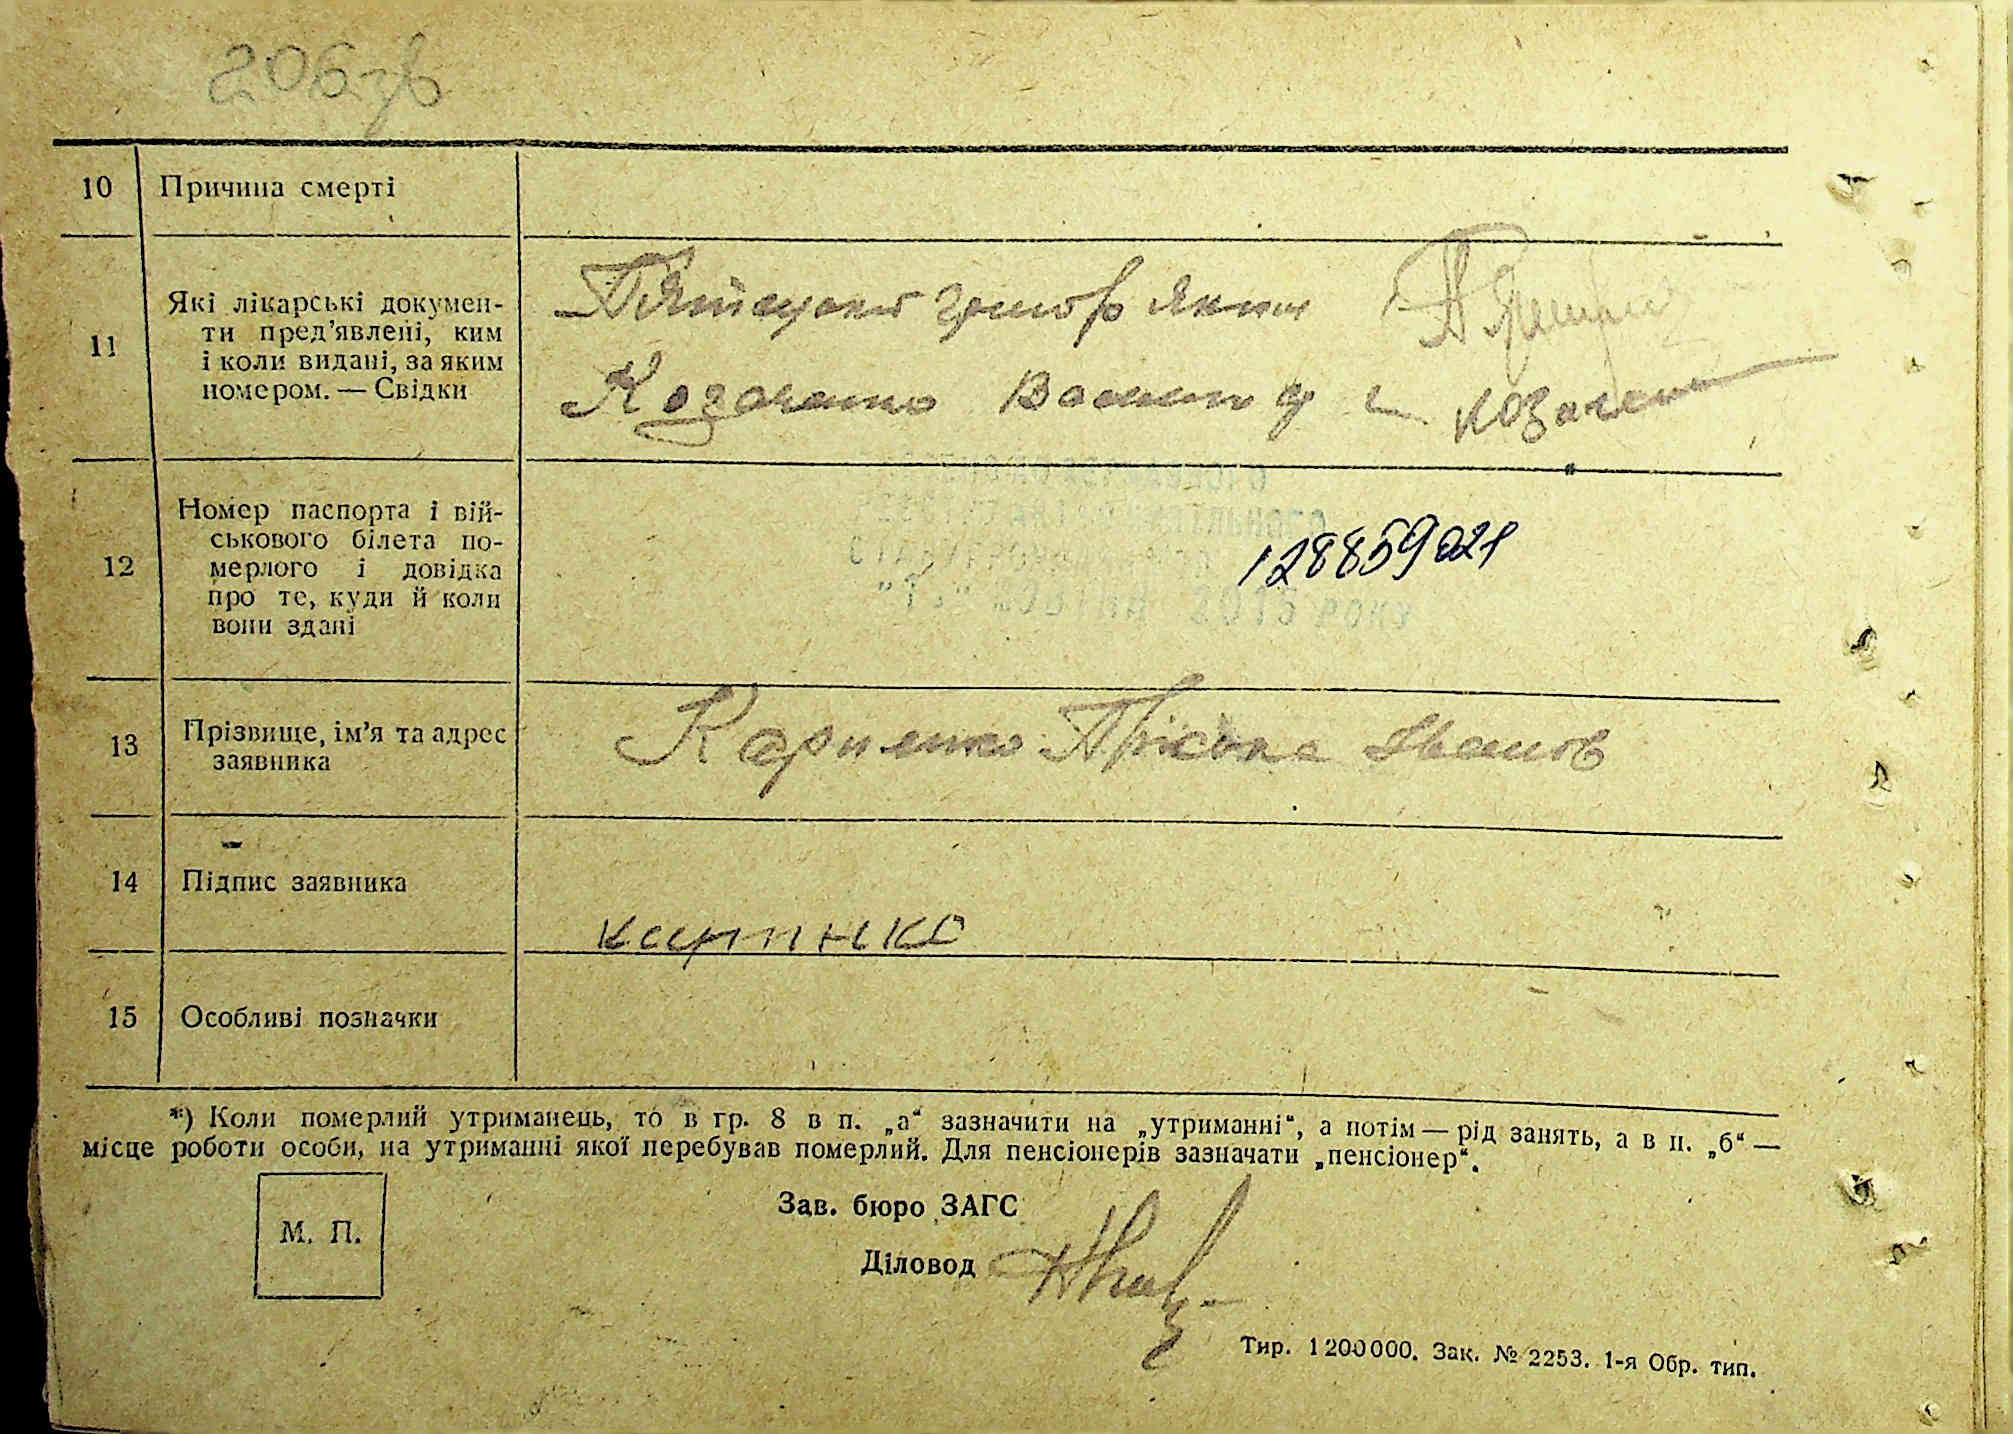 206 зв
10 Причина смерті
11 Які лікарські докумен-
ти пред’явлені, ким
і коли видані, за яким
номером. — Свідки
Козаченко
12 Номер паспорта і вій-
ськового білета по-
мерлого і довідка
про те, куди й коли
вони здані
128859021
13 Прізвище, ім’я та адрес
заявника
Іванов
14 Підпис заявника
15 Особливі позначки
*) Коли померлий утриманець, то в гр. 8 в п. „а“ зазначити на „утриманні“, а потім — рід занять, а в п. „б“ —
місце роботи особи, на утриманні якої перебував померлий. Для пенсіонерів зазначати „пенсіонер“.
М. П.
Зав. бюро ЗАГС
Діловод
Тир. 1200000. Зак. № 2253. 1-я Обр. тип.